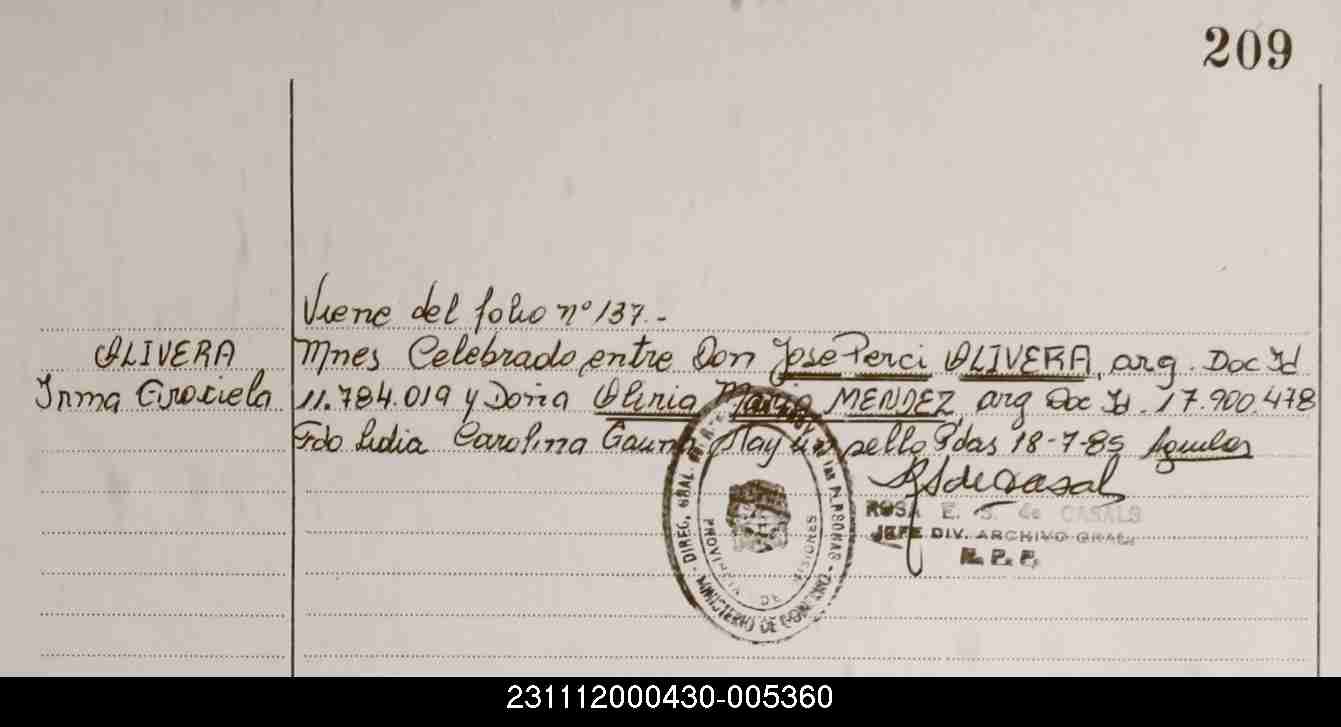 209
Viene del folio nº 137.-
OLIVERA Mnes Celebrado entre Don Jose Perci OLIVERA, arg. Doc Id
Irma Graciela 11.784.019 y Doña Maria MENDEZ, arg Doc Id. 17.900.478
Fdo Lidia Carolina Hay un sello Pdas 18-7-85 Aguilar
ROSA E. S. de CASALS
JEFE DIV. ARCHIVO GRAL.
R. P. P.
DIREC. GRAL. DE LAS PERSONAS - MINISTERIO DE GOBIERNO -
PROVINCIA DE MISIONES
231112000430-005360